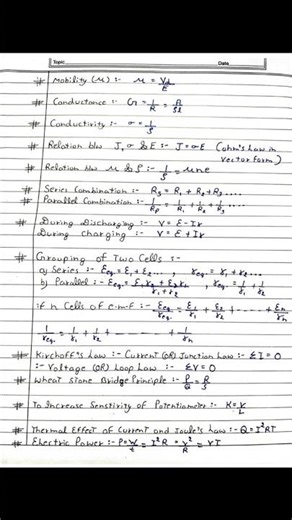 Topic Date
# Mobility (μ) :- μ = Vd/E
# Conductance :- G = 1/R = A/ρl
# Conductivity :- σ = 1/ρ
# Relation b/w J, σ & E :- J = σE (ohm's Law in vector form)
# Relation b/w μ & ρ :- 1/ρ = μne
# Series Combination :- Rs = R1 + R2 + R3 ....
# Parallel Combination :- 1/Rp = 1/R1 + 1/R2 + 1/R3 ....
# During Discharging :- V = E - Ir
During charging :- V = E + Ir
# Grouping of Two Cells :-
a) Series :- Eeq = E1 + E2 ... , req = r1 + r2 ...
b) Parallel :- Eeq = E1r2 + E2r1 / r1 + r2 , req = 1/r1 + 1/r2
if n Cells of e.m.f :- Eeq/req = E1/r1 + E2/r2 + ---- + En/rn
1/req = 1/r1 + 1/r2 + ---- + 1/rn
# Kirchoff's Law :- Current (OR) Junction Law :- ΣI = 0
:- Voltage (OR) Loop Law :- ΣV = 0
# Wheat Stone Bridge Principle :- P/Q = R/S
# To Increase Senstivity of Potentiometer :- K = V/L
# Thermal Effect of Current and Joule's Law :- Q = I²RT
# Electric Power :- P = W/t = I²R = V²/R = VI